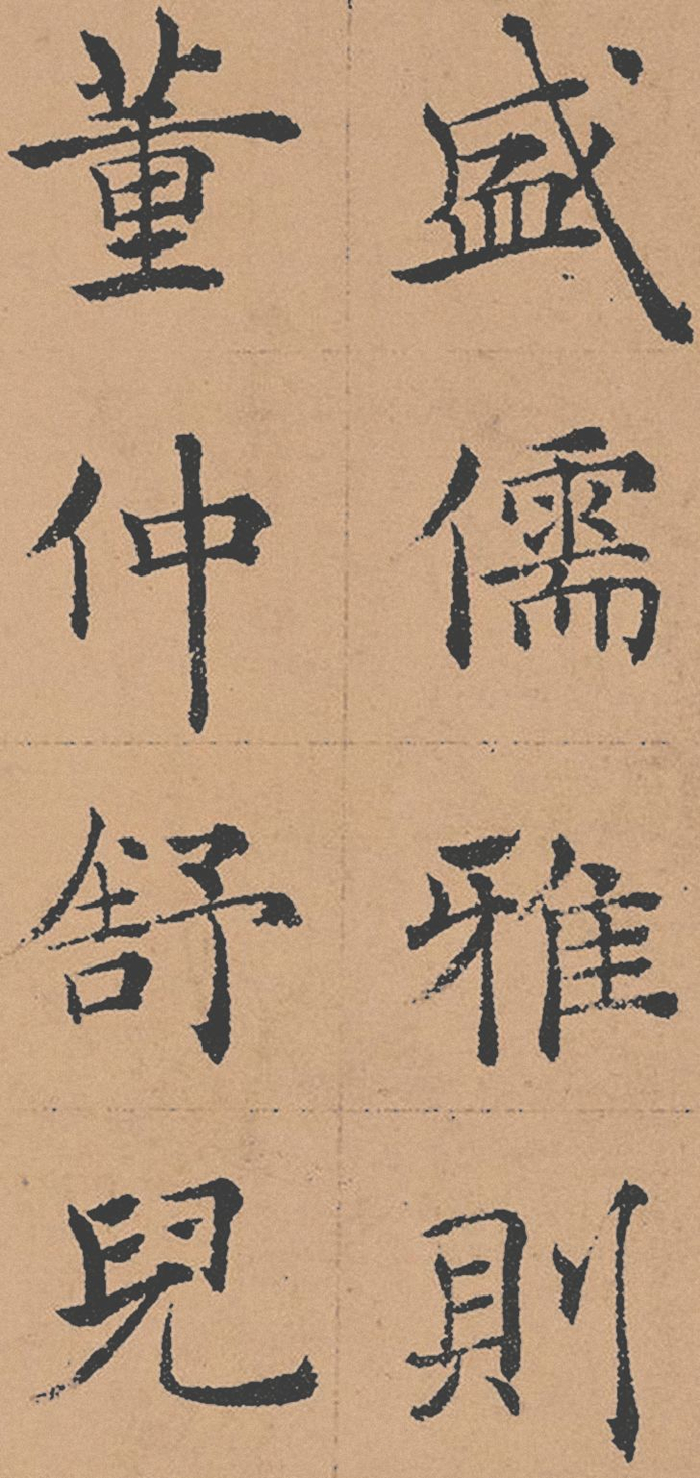 盛儒雅則
董仲舒兒